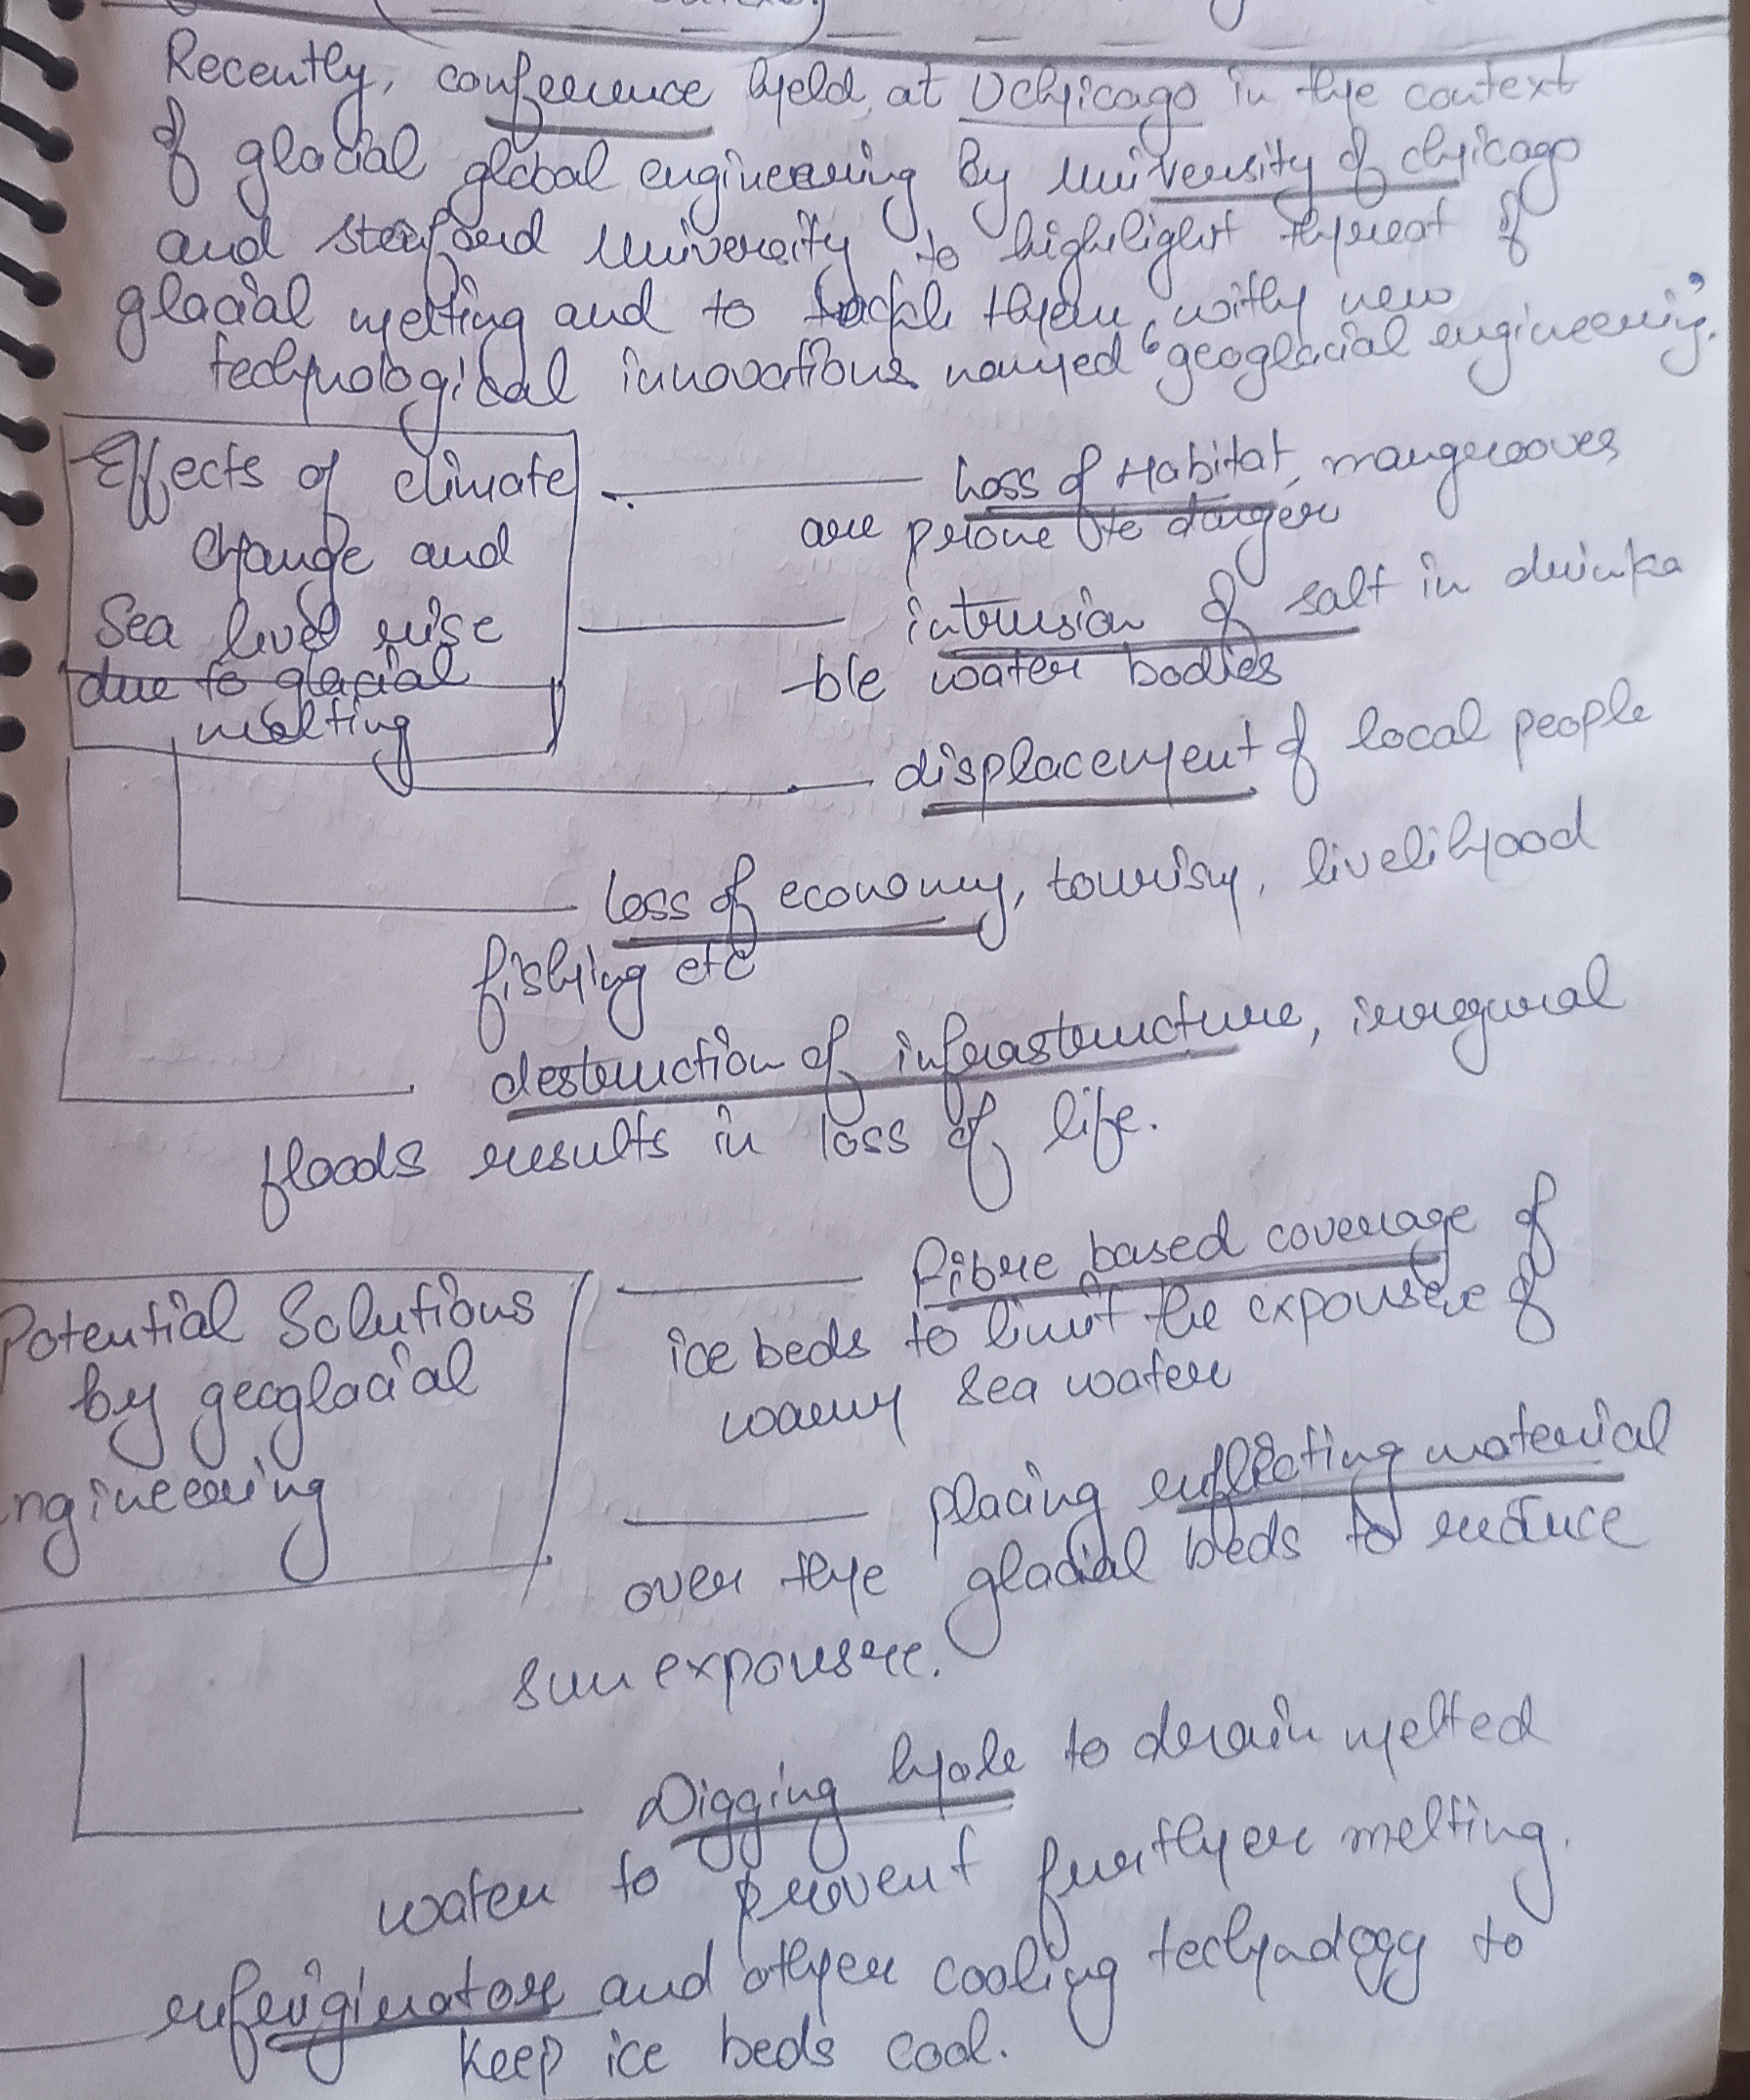 Recently, conference held at UChicago in the context
of glacial global engineering by university of chicago
and stanford university to highlight threat of
glacial melting and to tackle them with new
technological innovations named 'geoglacial engineering'.
Effects of climate
change and
Sea level rise
due to glacial
melting
Loss of Habitat, mangrooves
are prone to danger
intrusion of salt in drinka
-ble water bodies
displacement of local people
loss of economy, tourism, livelihood
fishing etc
destruction of infrastructure, irregural
floods results in loss of life.
Potential Solutions
by geoglacial
engineering
fibre based coverage of
ice beds to limit the expousere of
warm sea water
placing reflecting material
over the glacial beds to reduce
sun expousere.
Digging hole to drain melted
water to prevent further melting.
refriginators and other cooling technology to
keep ice beds cool.